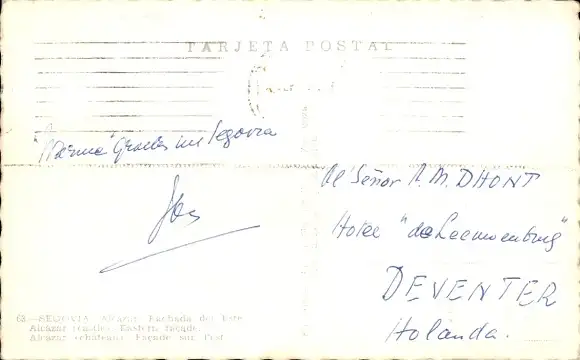 TARJETA POSTAL
"Warme" Groeten uit Segovia
Al Señor A. M. DHONT
Hotel "de Leeuwenbrug"
DEVENTER
Holanda.
63.—SEGOVIA. Alcázar. Fachada del Este.
Alcázar (castle). Eastern façade.
Alcázar (château). Façade sur l'est.